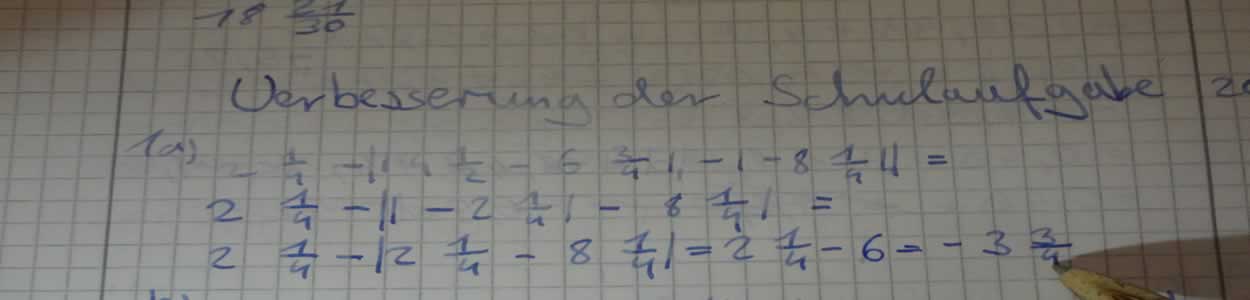 18 21/30
Verbesserung der Schulaufgabe
1a) 2 1/4 - || 4 1/2 - 6 3/4 | - | - 8 1/4 || =
2 1/4 - || - 2 1/4 | - 8 1/4 | =
2 1/4 - | 2 1/4 - 8 1/4 | = 2 1/4 - 6 = - 3 3/4